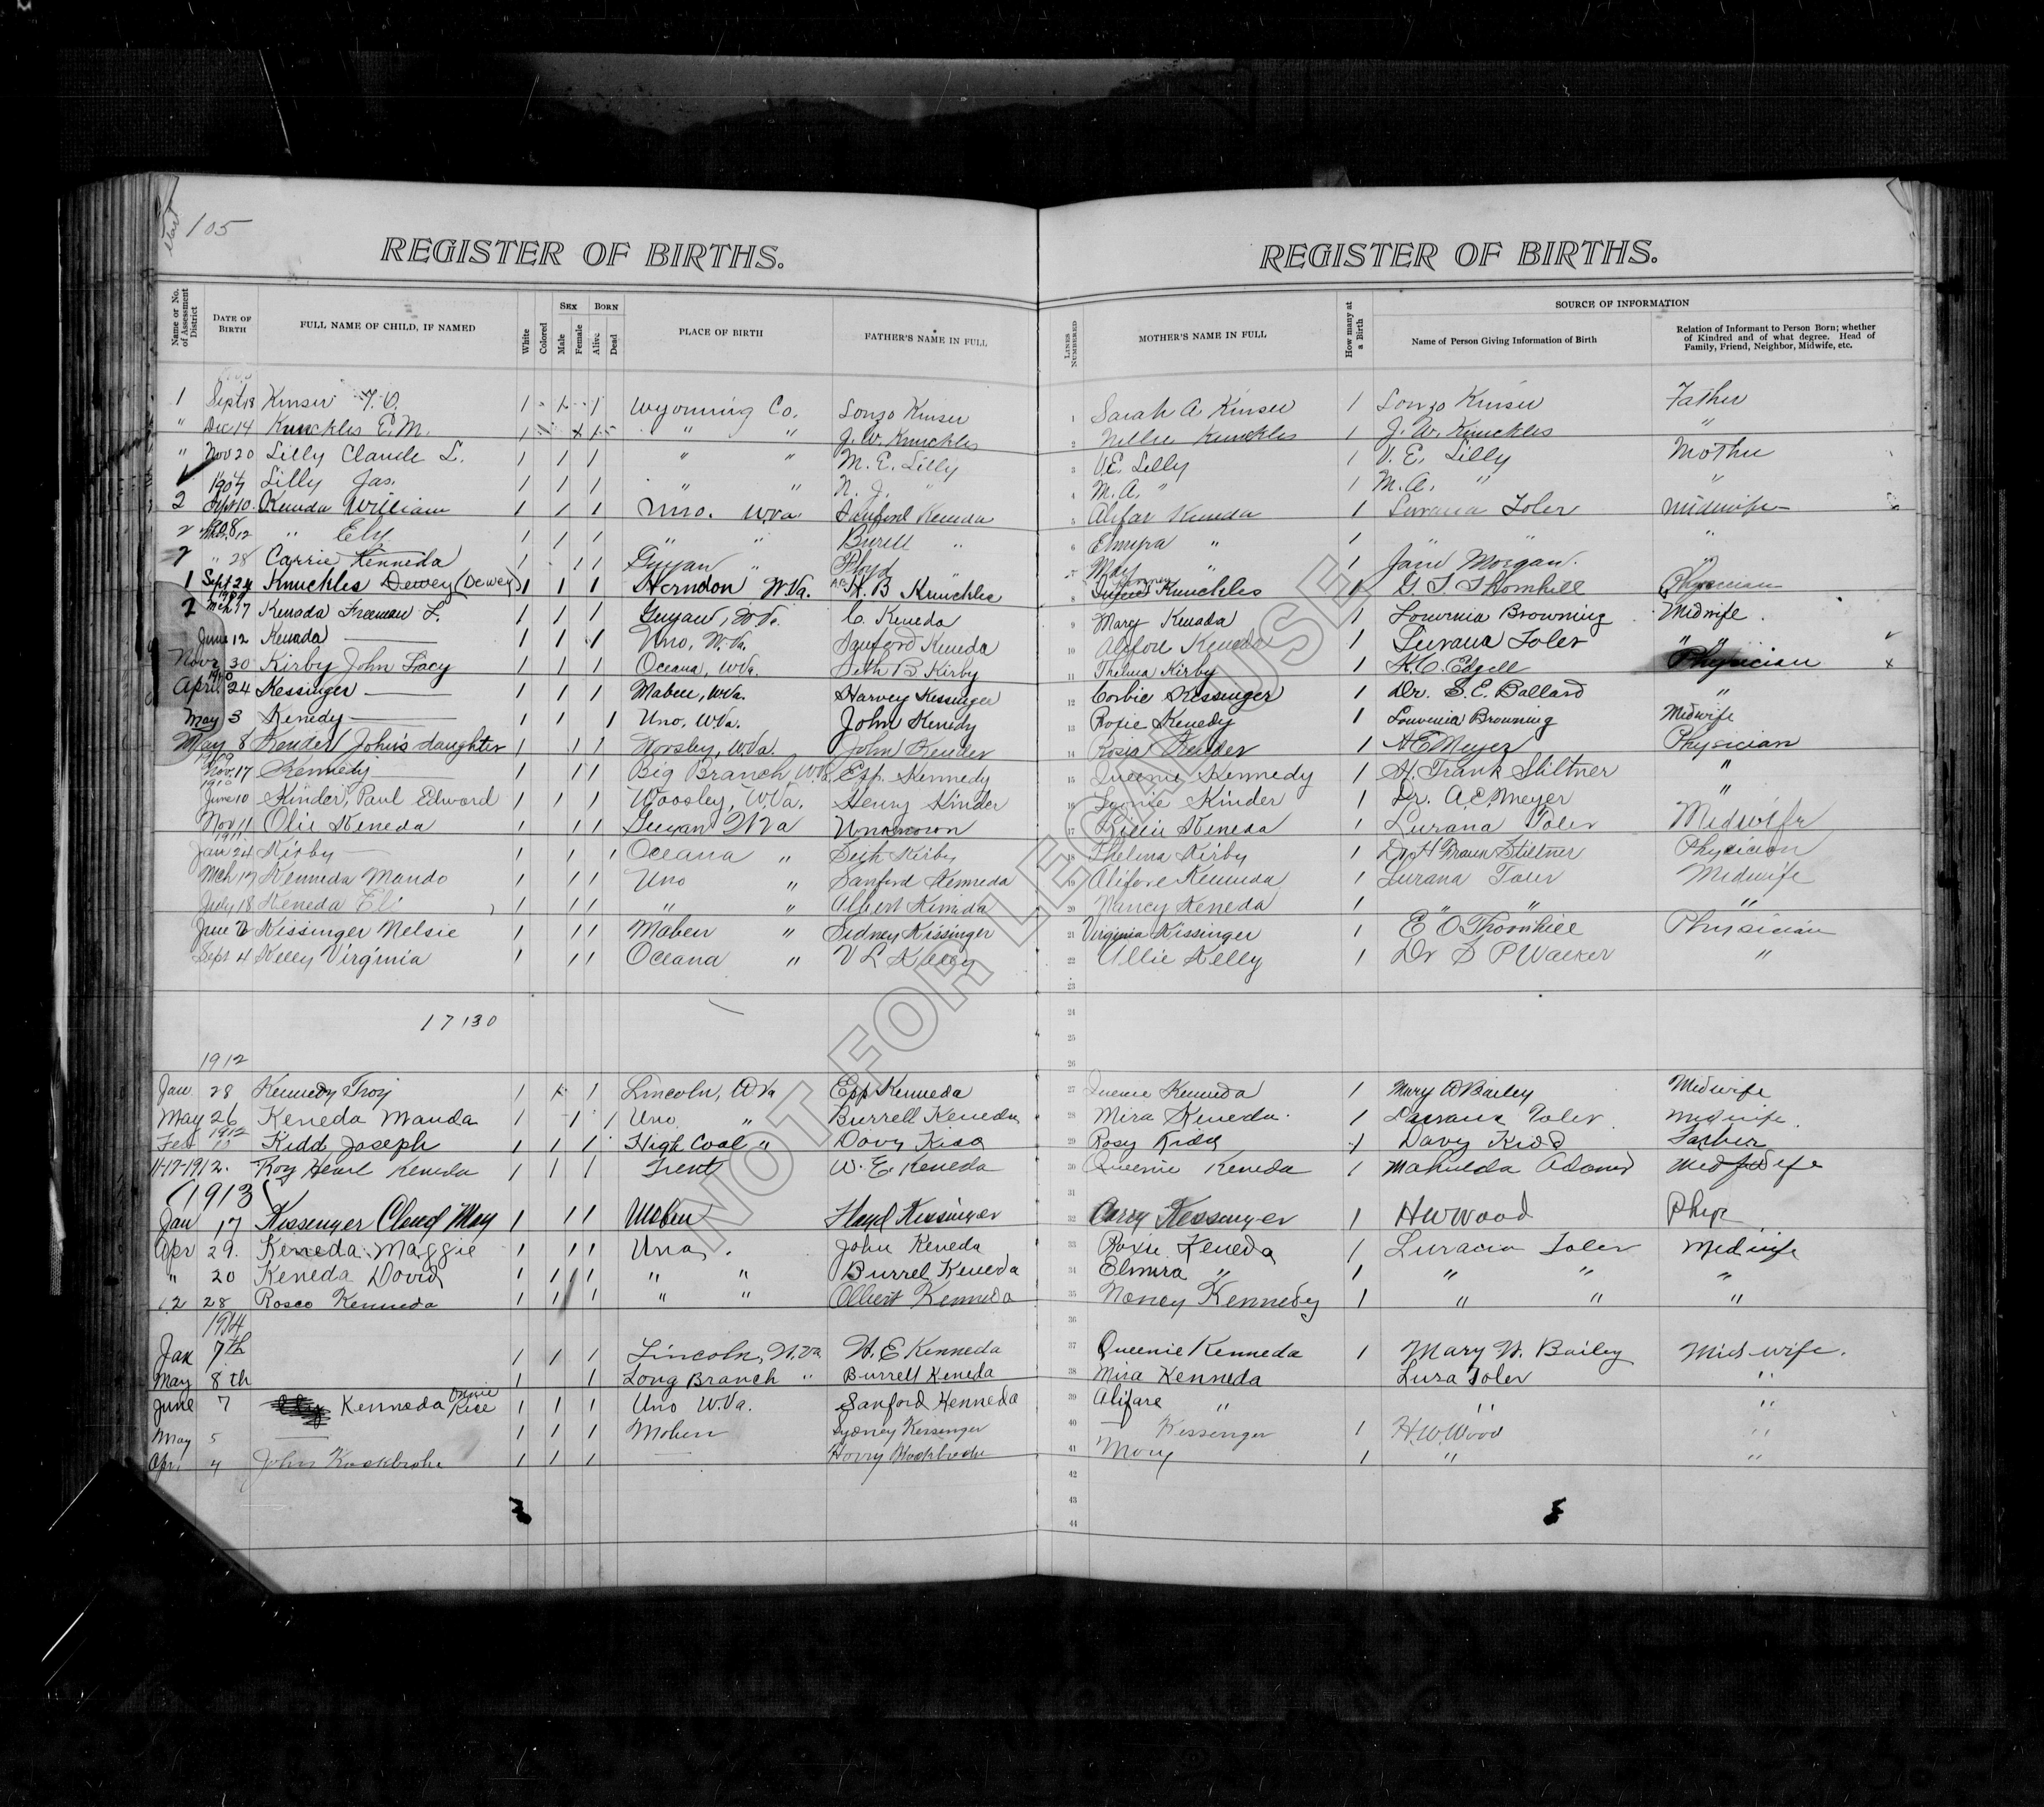 105
REGISTER OF BIRTHS. REGISTER OF BIRTHS.
Name or No. of Assessment District | DATE OF BIRTH | FULL NAME OF CHILD, IF NAMED | White | Colored | SEX Male Female | BORN Alive Dead | PLACE OF BIRTH | FATHER'S NAME IN FULL | LINES NUMBERED | MOTHER'S NAME IN FULL | How many at a Birth | SOURCE OF INFORMATION Name of Person Giving Information of Birth | Relation of Informant to Person Born; whether of Kindred and of what degree. Head of Family, Friend, Neighbor, Midwife, etc.
1 Sept 18 Kinser 1 1 Wyoming Co. Lonzo Kinser 1 Sarah A. Kinser 1 Lonzo Kinser Father
" Dec 14 Knuckles E.M. 1 x 1 " " J. W. Knuckles 2 Nellie Knuckles 1 J. W. Knuckles "
" Nov 20 Lilly Claude L. 1 1 1 " " M. E. Lilly 3 V.E. Lilly 1 V. E. Lilly Mother
1904 Lilly Jas. 1 1 1 " " N. J. " 4 M. A. " 1 M. A. " "
2 Sept 10 Keneda William 1 1 1 Uno. W.Va Sanford Keneda 5 Alifar Keneda 1 Lurana Toler Midwife
2 1908 12 " Ely 1 1 1 " " Burell " 6 Elmira " 1 " " "
2 " 28 Carrie Kenneda 1 1 1 Guyan " Floyd " 7 May " 1 Jane Morgan. "
1 Sept 24 Knuckles Dewey (Dewey) 1 1 1 Herndon W.Va. H. B Knuckles 8 Knuckles 1 G. T. Thornhill Physician
1909
2 Mch 17 Kenada Freeman L. 1 1 1 Guyan, W.Va. C. Keneda 9 Mary Kenada 1 Louvenia Browning Midwife.
June 12 Kenada 1 1 1 Uno, W.Va. Sanford Keneda 10 Alifou Keneda 1 Lurana Toler " "
Novr 30 Kirby John Tracy 1 1 1 Oceana, W.Va. Seth B Kirby 11 Thelma Kirby 1 H. C. Edgell Physician x
1910
April 24 Kessinger 1 1 1 Maben, W.Va. Harvey Kessinger 12 Corbie Kessinger 1 Dr. S. E. Ballard "
May 3 Kenedy 1 1 1 Uno, W.Va. John Kenedy 13 Roxie Kenedy 1 Louvenia Browning Midwife
May 8 Kender John's daughter 1 1 1 Worsley, W.Va. John Kender 14 Rosia Kender 1 A E Meyer Physician
1909
Nov. 17 Kennedy 1 1 1 Big Branch, W.Va. Esp. Kennedy 15 Queenie Kennedy 1 H. Frank Stiltner "
1910
June 10 Kinder, Paul Edward 1 1 1 Woosley, W.Va. Henry Kinder 16 Kinder 1 Dr. A. E. Meyer "
Nov 11 Olie Keneda 1 1 1 Guyan W Va Unknown 17 Lillie Keneda 1 Lurana Toler Midwife
1911
Jan 24 Kirby 1 1 1 Oceana " Seth Kirby 18 Thelma Kirby 1 Dr H Frank Stiltner Physician
Mch 17 Kenneda Mando 1 1 1 Uno " Sanford Kenneda 19 Alifore Kenneda 1 Lurana Toler Midwife
July 18 Keneda Eli 1 1 1 " " Albert Keneda 20 Nancy Keneda 1 " " "
June 2 Kissinger Nelsie 1 1 1 Maben " Sidney Kissinger 21 Virginia Kissinger 1 E O Thornhill Physician
Sept 4 Kelly Virginia 1 1 1 Oceana " V L Kelly 22 Ollie Kelly 1 Dr S P Walker "
23
17130 24
25
1912 26
Jan 28 Kennedy Troy 1 x 1 Lincoln, W.Va Epp Kenneda 27 Queene Kenneda 1 Mary A Bailey Midwife
May 26 Keneda Wanda 1 1 1 Uno " Burrell Keneda 28 Mira Keneda. 1 Laurana Toler. Midwife.
Feb 1912 Kidd Joseph 1 1 1 High Coal " Davy Kidd 29 Rosy Kidd 1 Davy Kidd Father
11-17-1912. Roy Hearl Keneda 1 1 1 Trent W. E. Keneda 30 Queenie Keneda 1 Mahulda Adams Midwife
(1913) 31
Jan 17 Kessenger Cloud May 1 1 1 Maben Floyd Kessinger 32 Kessenger 1 H W Wood Phys
Apr 29. Keneda Maggie 1 1 1 Uno. John Keneda 33 Roxie Keneda 1 Lurana Toler Midwife
" 20 Keneda David 1 1 1 " " Burrel Keneda 34 Elmira " 1 " " "
12 28 Rosco Kenneda 1 1 1 " " Albert Kenneda 35 Nancy Kennedy 1 " " "
1914 36
Jan 7th 1 1 1 Lincoln, W.Va W. E Kenneda 37 Queenie Kenneda 1 Mary W. Bailey Mid-wife.
May 8th 1 1 Long Branch " Burrell Keneda 38 Mira Kenneda Lura Toler "
June 7 Kenneda Onnie Kile 1 1 1 Uno W.Va. Sanford Kenneda 39 Alifare " " "
May 5 1 1 1 Maben Sydney Kessenger 40 Kessenger 1 H.W. Wood "
Apr. 4 John Kookbroke 1 1 1 Harry 41 Mary 1 " "
42
43
44
NOT FOR LEGAL USE